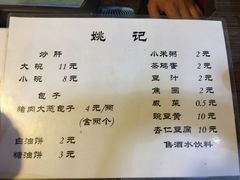 姚记
炒肝
大碗 11元
小碗 8元
包子
猪肉大葱包子 4元/两
(含两个)
白油饼 2元
糖油饼 3元
小米粥 2元
茶鸡蛋 2元
豆汁 2元
焦圈 2元
咸菜 0.5元
豌豆黄 10元
杏仁豆腐 10元
售酒水饮料